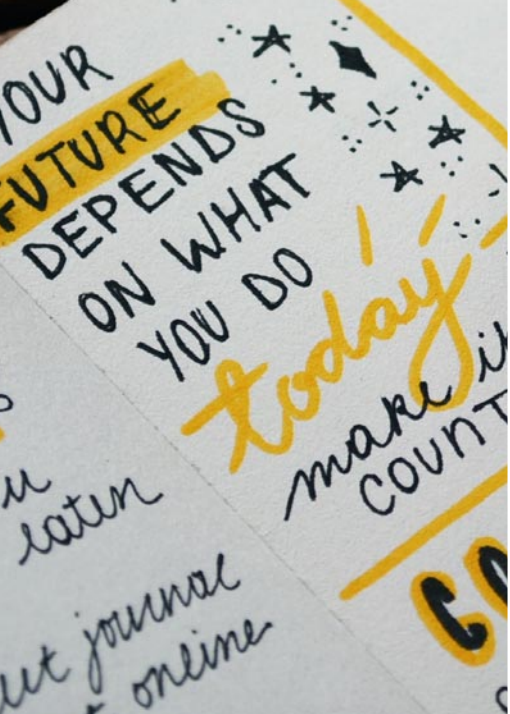 YOUR
FUTURE
DEPENDS
ON WHAT
YOU DO
today
make i
COUNT
eaten
journal
online